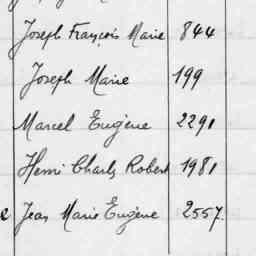 Joseph François Marie 844
Joseph Marie 199
Marcel Eugène 2291
Henri Charles Robert 1981
Jean Marie Eugène 2557